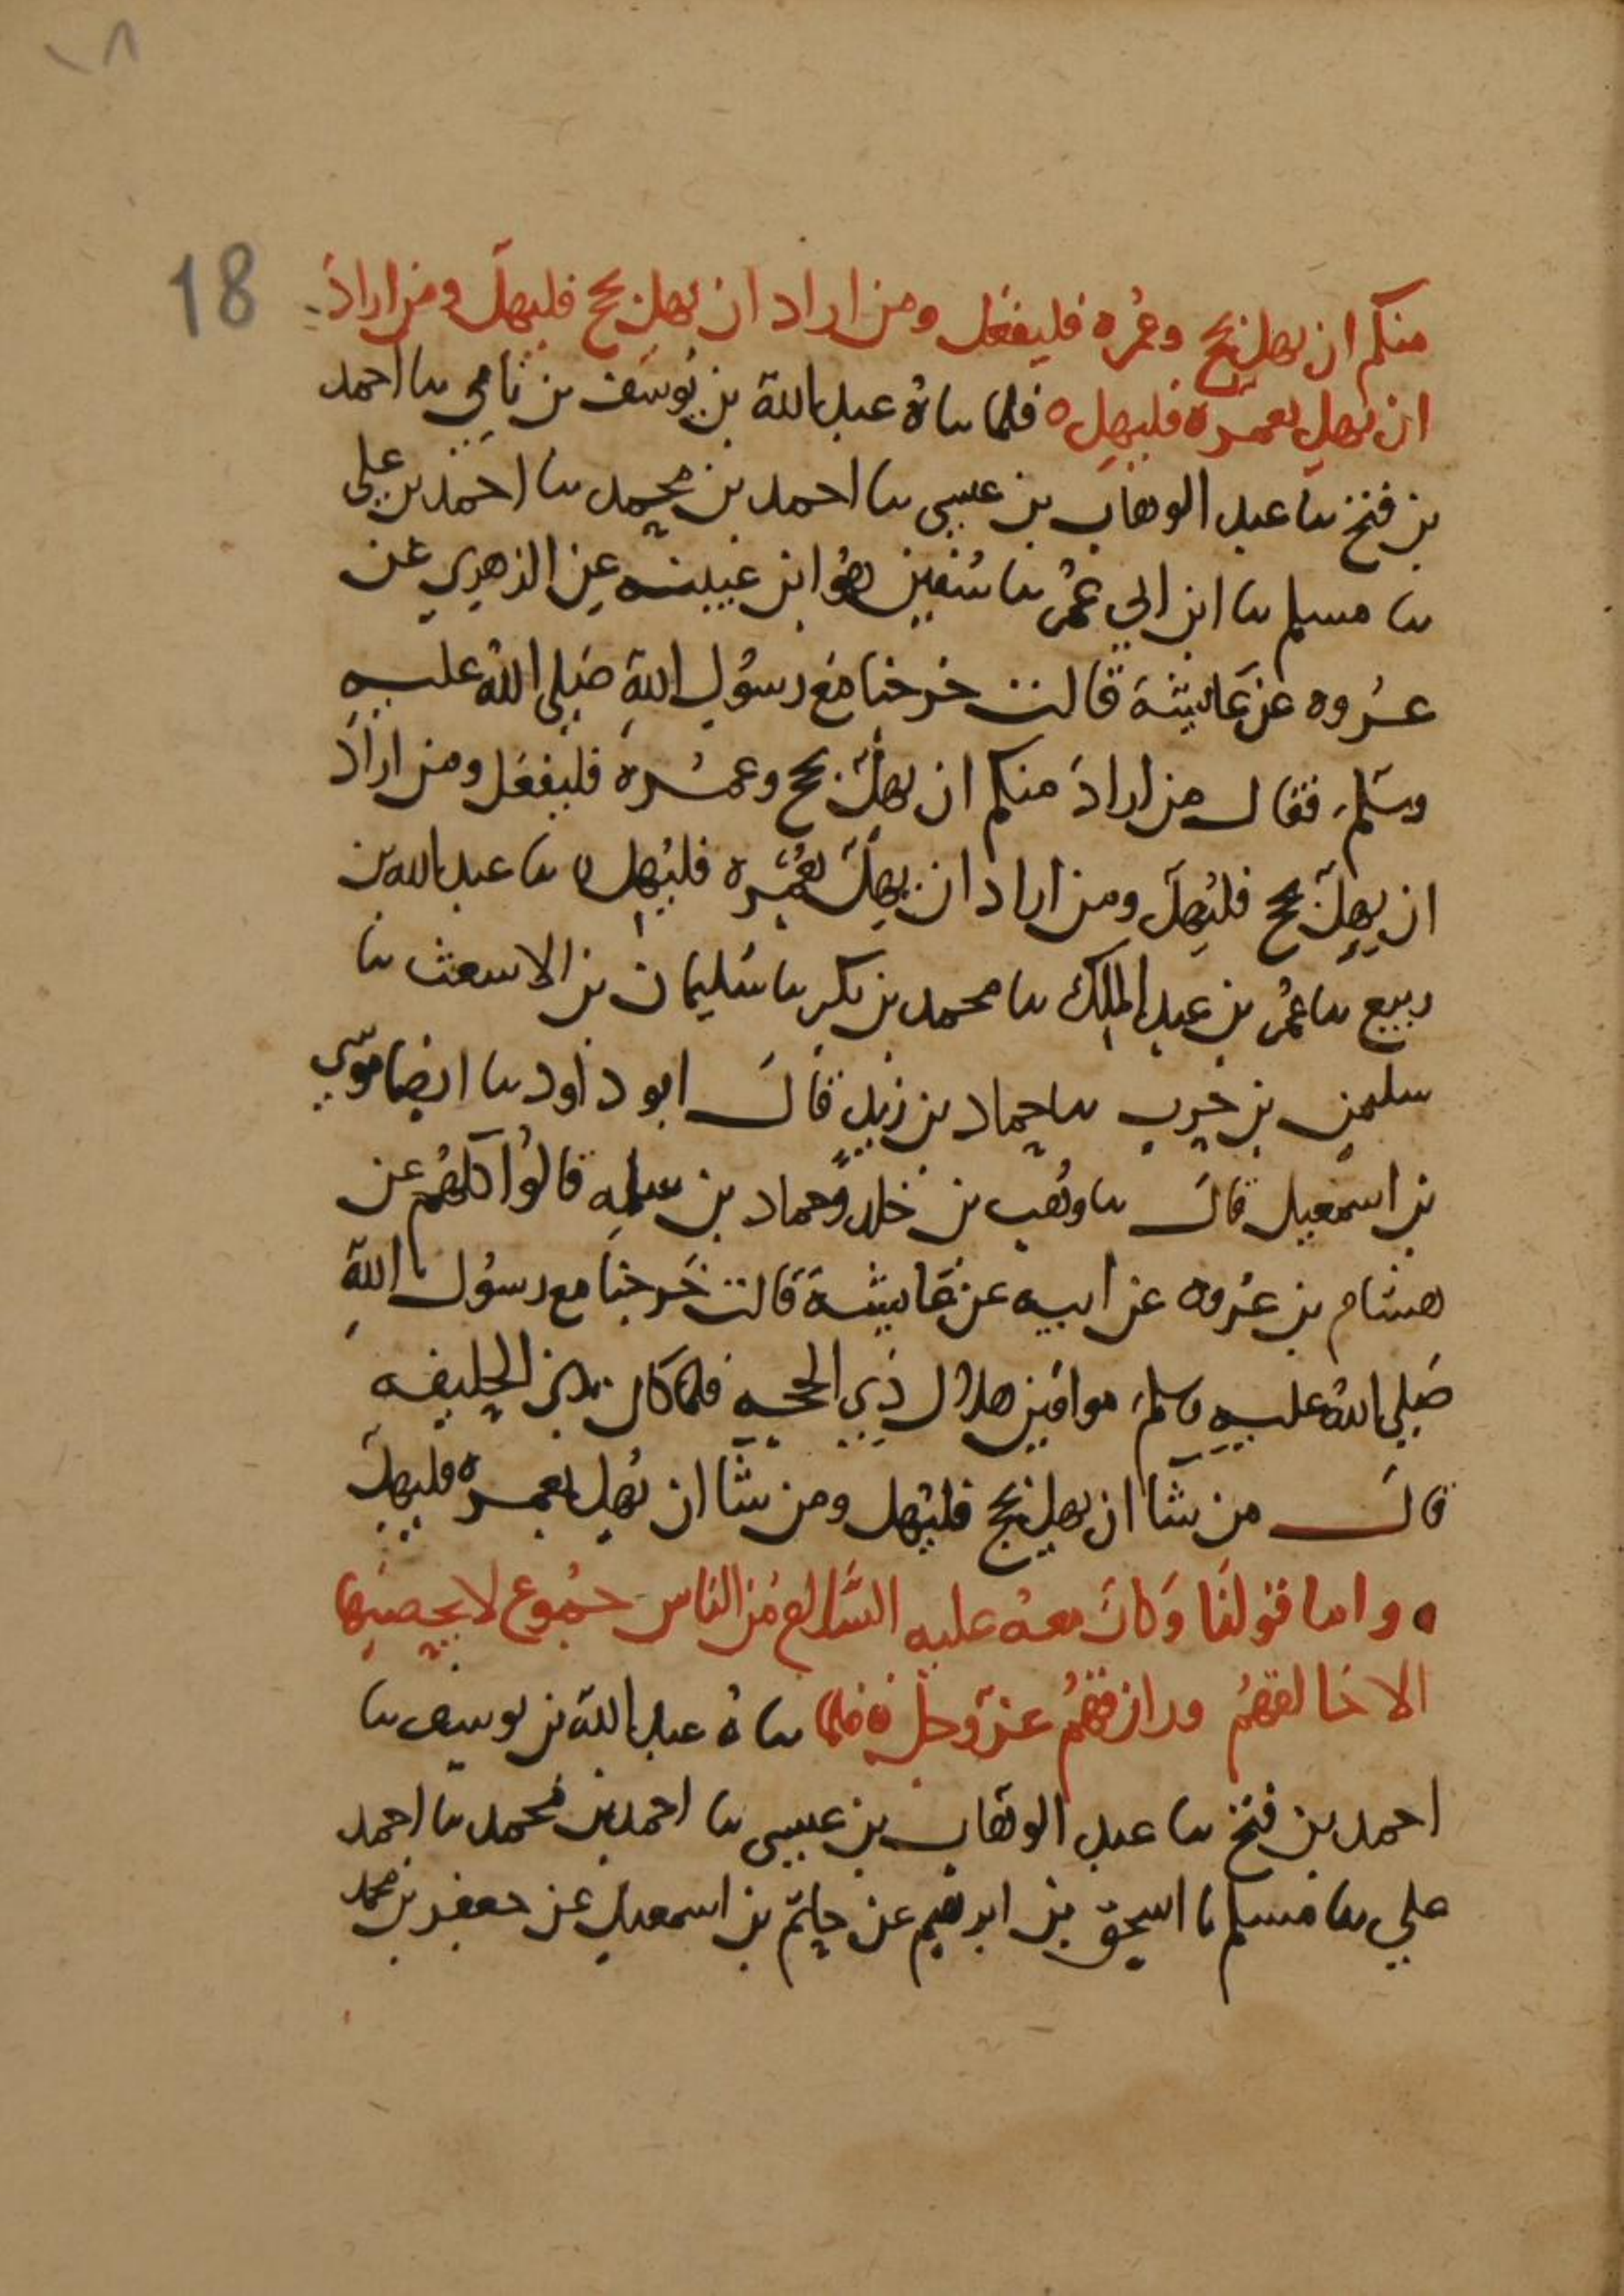 ١٨
18
منكم ان يهل بحج وعمره فليفعل ومن اراد ان يهل بحج فليهل ومن اراد
ان يهل بعمرة فليهل ه فلما ساه عبد الله بن يوسف بن نامي سا احمد
بن فتح سا عبد الوهاب بن عيسى سا احمد بن محمد سا احمد بن علي
سا مسلم سا ابن ابي عمر سا سفين هو ابن عيينه عن الزهري عن
عروه عن عايشة قالت خرجنا مع رسول الله صلى الله عليه
وسلم فقال من اراد منكم ان يهل بحج وعمرة فليفعل ومن اراد
ان يهل بحج فليهل ومن اراد ان يهل بعمره فليهل ه سا عبد الله بن
ربيع سا عمر بن عبد الملك سا محمد بن بكر سا سليمان بن الاسعث سا
سليمن بن حرب سا حماد بن زيد قال ابو داود سا ايضا موسى
بن اسمعيل قال سا وهب بن خلد وحماد بن سلمه قالوا كلهم عن
هشام بن عروه عن ابيه عن عايشة قالت خرجنا مع رسول الله
صلى الله عليه وسلم موافين هلال ذي الحجه فلما كان بذي الحليفه
قال من شا ان يهل بحج فليهل ومن شا ان يهل بعمره فليهل
• واما قولنا وكان معه عليه السلام من الناس جموع لا يحصيها
الا خالقهم ورازقهم عز وجل ه فلما ساه عبد الله بن يوسف سا
احمد بن فتح سا عبد الوهاب بن عيسى سا احمد بن محمد سا احمد
علي سا مسلم سا اسحق بن ابرهيم عن حاتم بن اسمعيل عن جعفر بن محمد